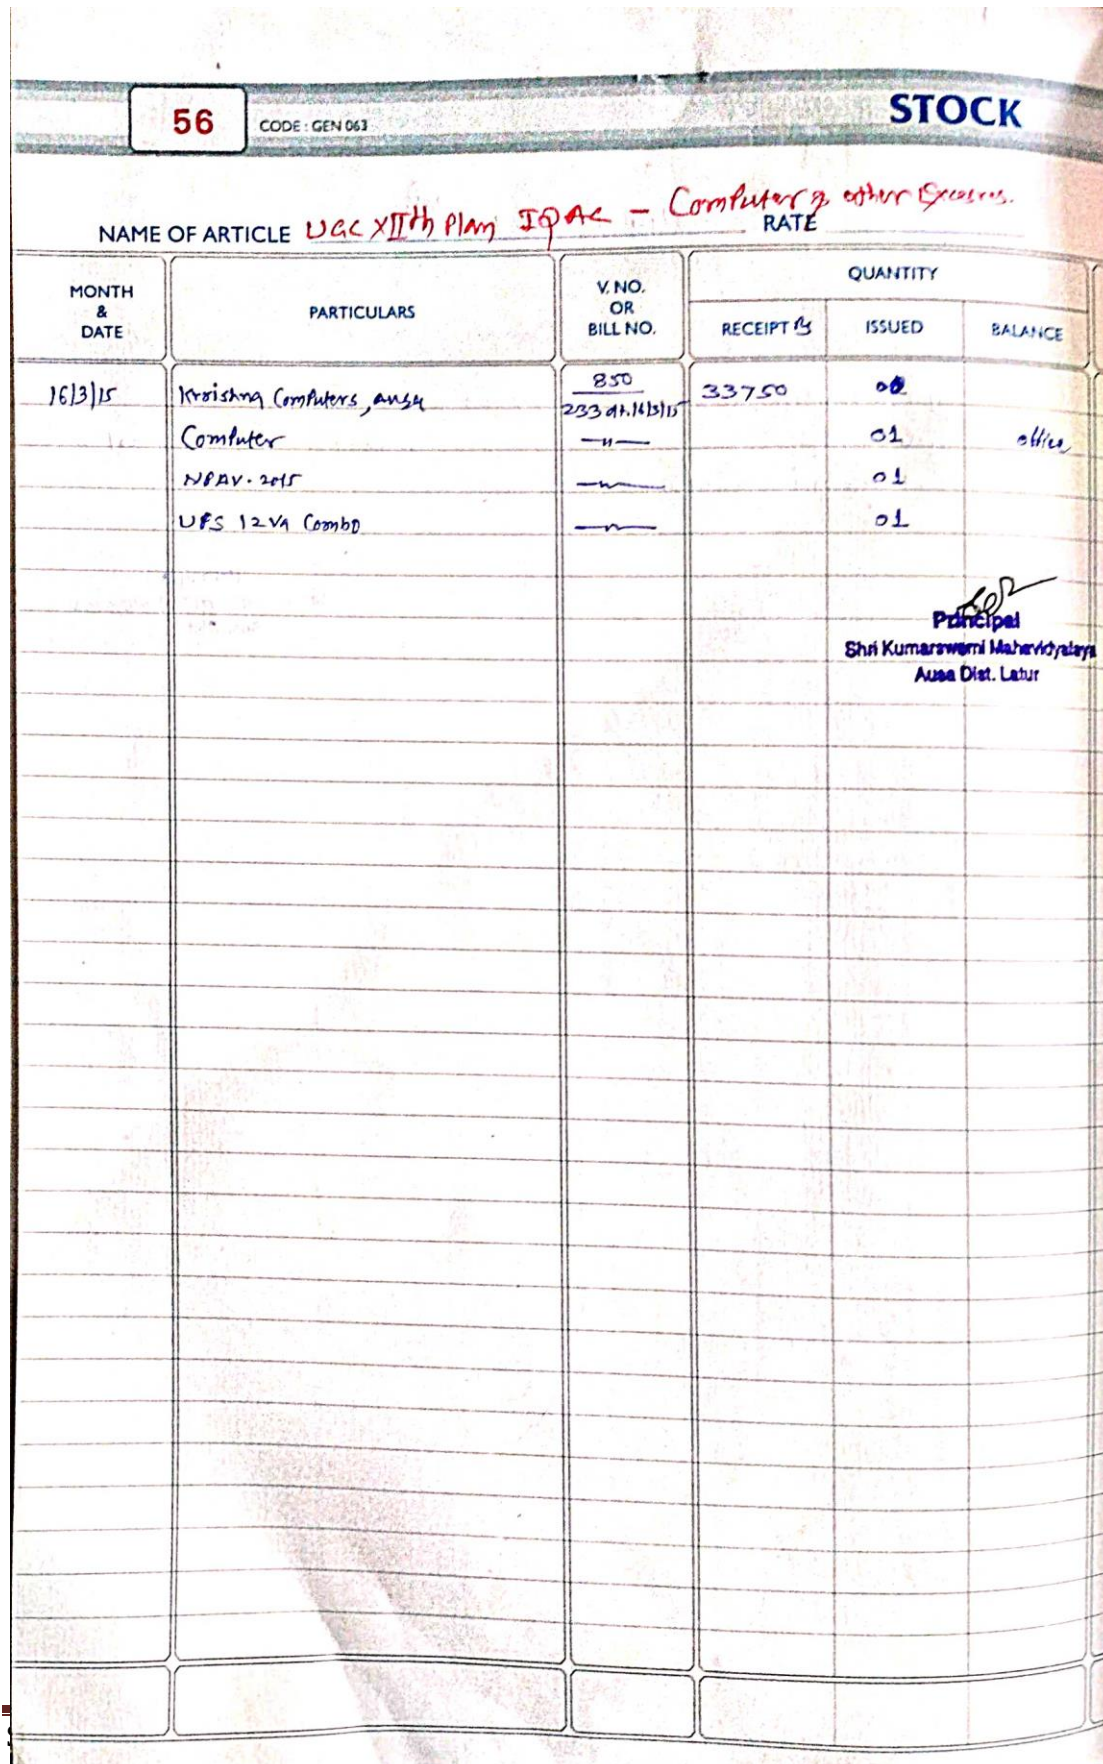 56 CODE : GEN 063 STOCK
NAME OF ARTICLE UGC XIIth Plan IQAC - Computer & other RATE
MONTH & DATE PARTICULARS V. NO. OR BILL NO. QUANTITY
RECEIPT Rs ISSUED BALANCE
16/3/15 Krishna Computers, ausa 850 33750
233 dt. 16/3/15
Computer —"— 01 office
NPAV. 2015 —"— 01
UPS 12VA Combo —"— 01
Principal
Shri Kumarswami Mahavidyalaya
Ausa Dist. Latur